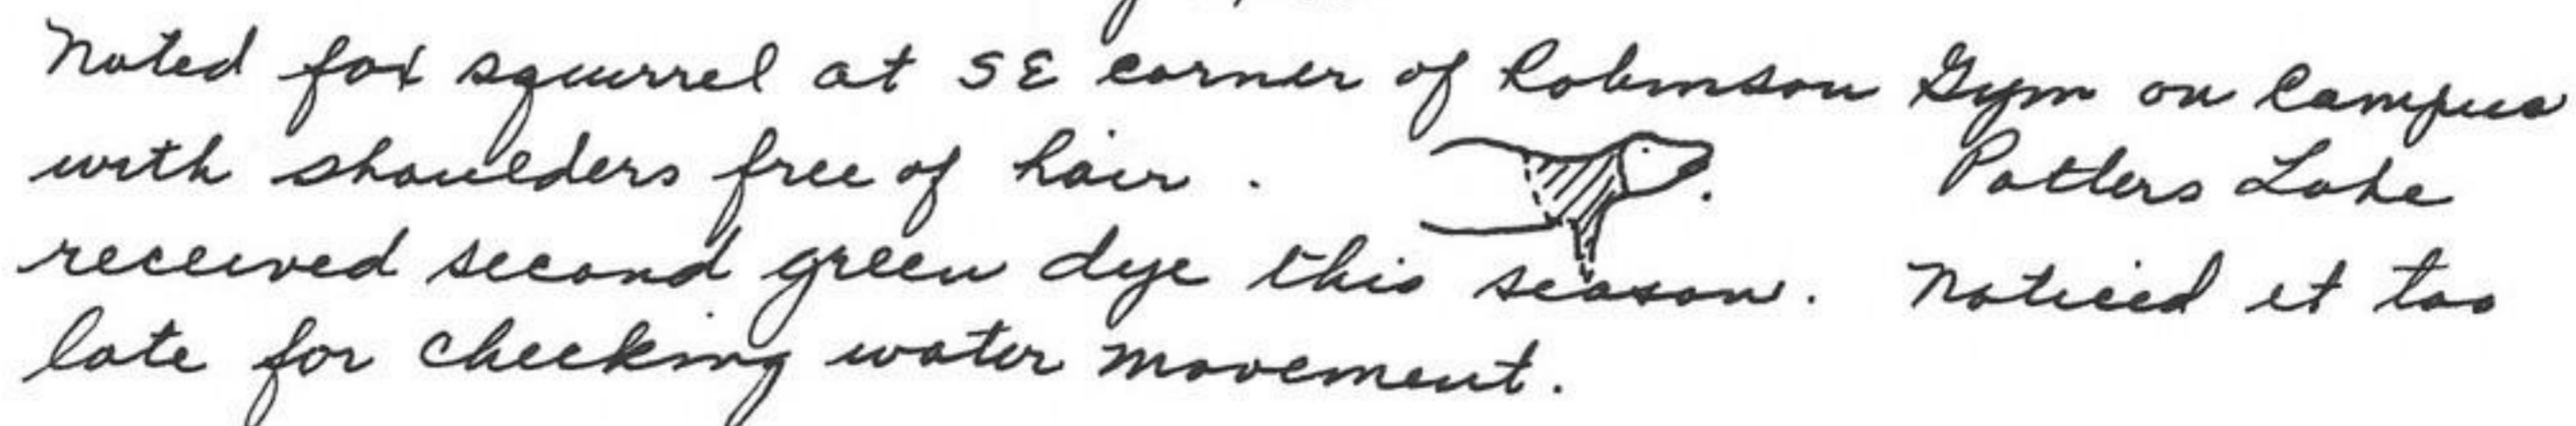 Noted fox squirrel at SE corner of Robinson Gym on Campus
with shoulders free of hair. Potters Lake
received second green dye this season. Noticed it too
late for checking water movement.